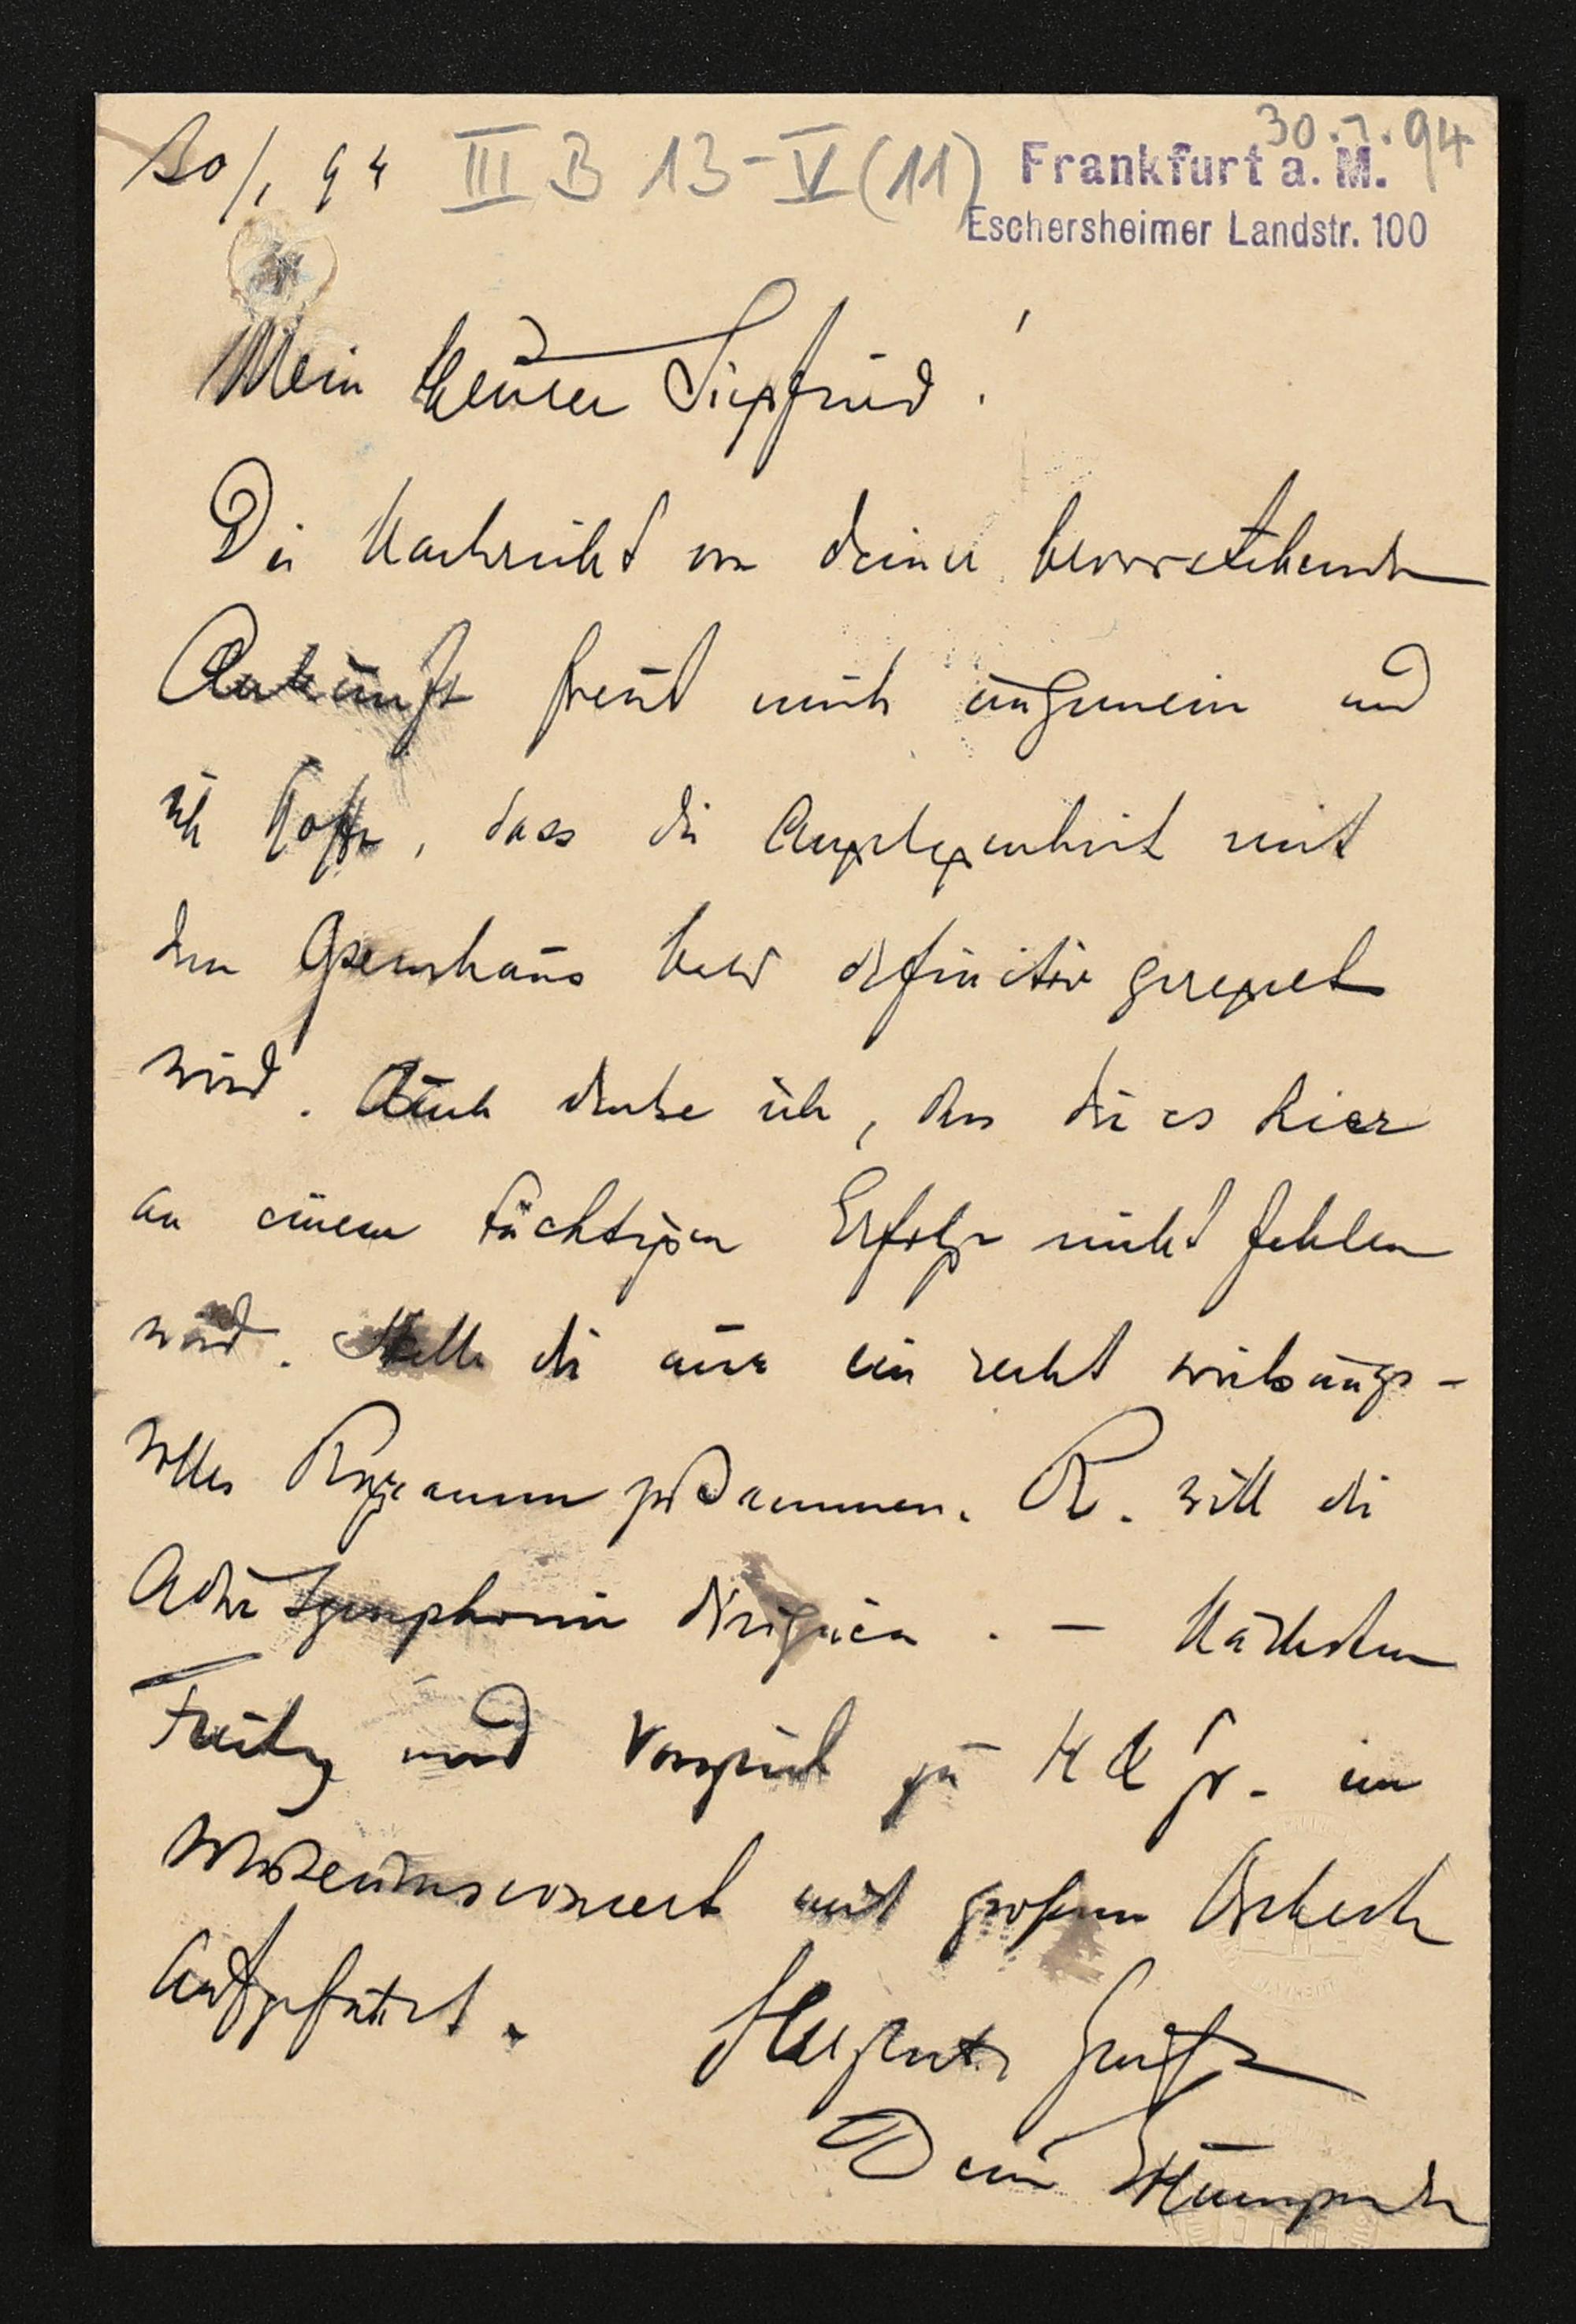 30/1 94 III B 13-V (11) 30.1.94
Frankfurt a. M.
Eschersheimer Landstr. 100
Mein theurer Siegfried!
Die Nachricht von deiner bevorstehenden
Ankunft freut mich ungemein und
ich hoffe, dass die Angelegenheit mit
dem Opernhaus bald definitiv geregelt
wird. Auch denke ich, dass dir es hier
an einem tüchtigen Erfolge nicht fehlen
wird. Stelle dir nur ein recht wirkungs-
volles Programm zusammen. R. will die
Achte Symphonie dirigieren. – Nächsten
Freitag wird Vorspiel zu H & Gr. im
Museumsconcert mit großem Orchester
aufgeführt. Herzlichste Grüße
Dein Humperdi